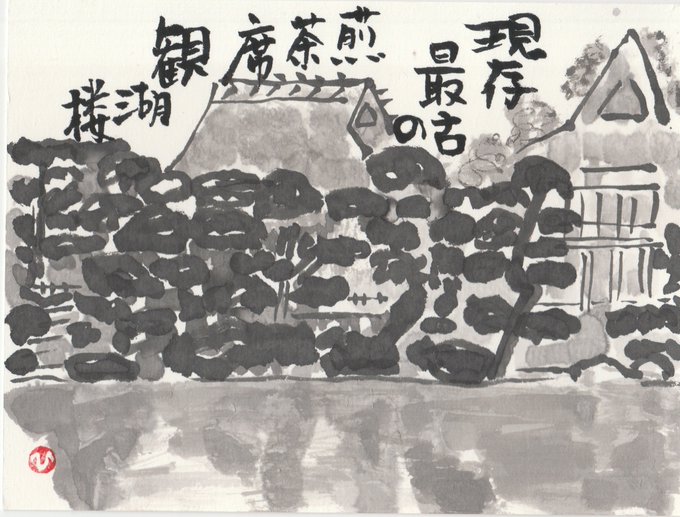 現存
最古の
煎茶席
観湖楼